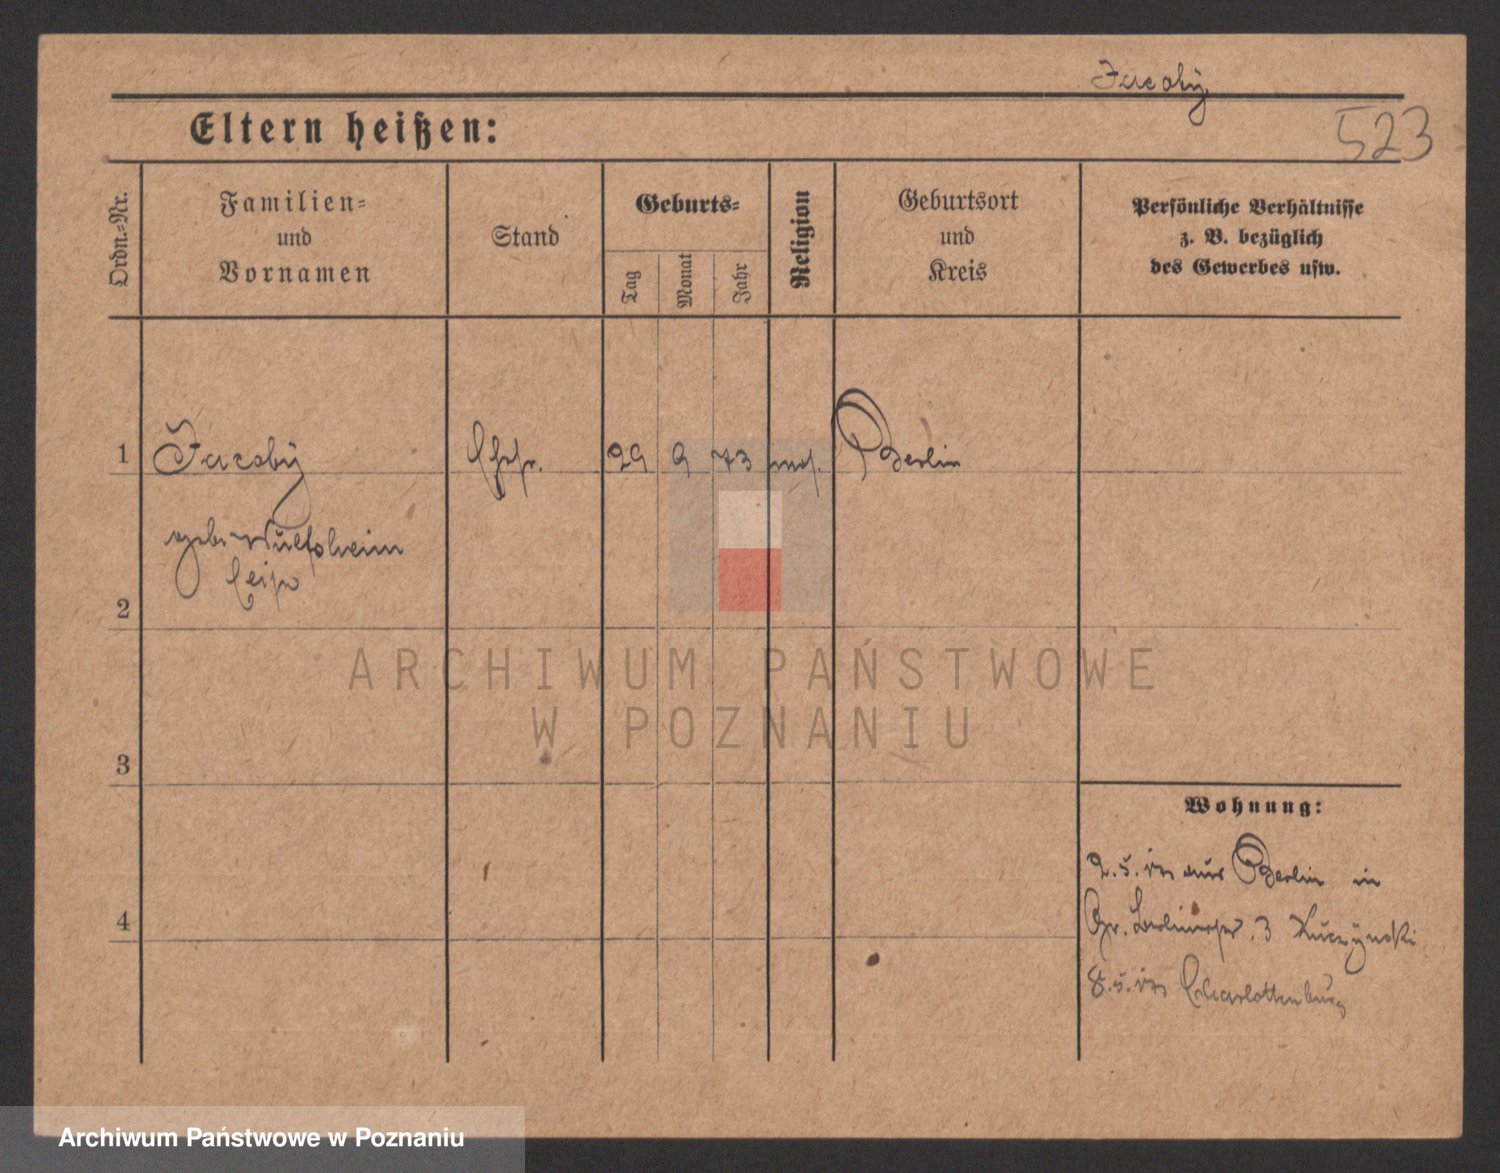 Jacoby
Eltern heißen:
523
Ordn.=Nr.
Familien=
und
Vornamen
Stand
Geburts=
Tag
Monat
Jahr
Religion
Geburtsort
und
Kreis
Persönliche Verhältnisse
z. B. bezüglich
des Gewerbes usw.
1
Jacoby
Ehefr.
29
9
73
mos.
Berlin
geb. Wulfsheim
2
ARCHIWUM PAŃSTWOWE
W POZNANIU
3
Wohnung:
2.5. aus Berlin in
Gr. Berlinerstr. 3 Kuczynski
4
8.5. Charlottenburg
Archiwum Państwowe w Poznaniu